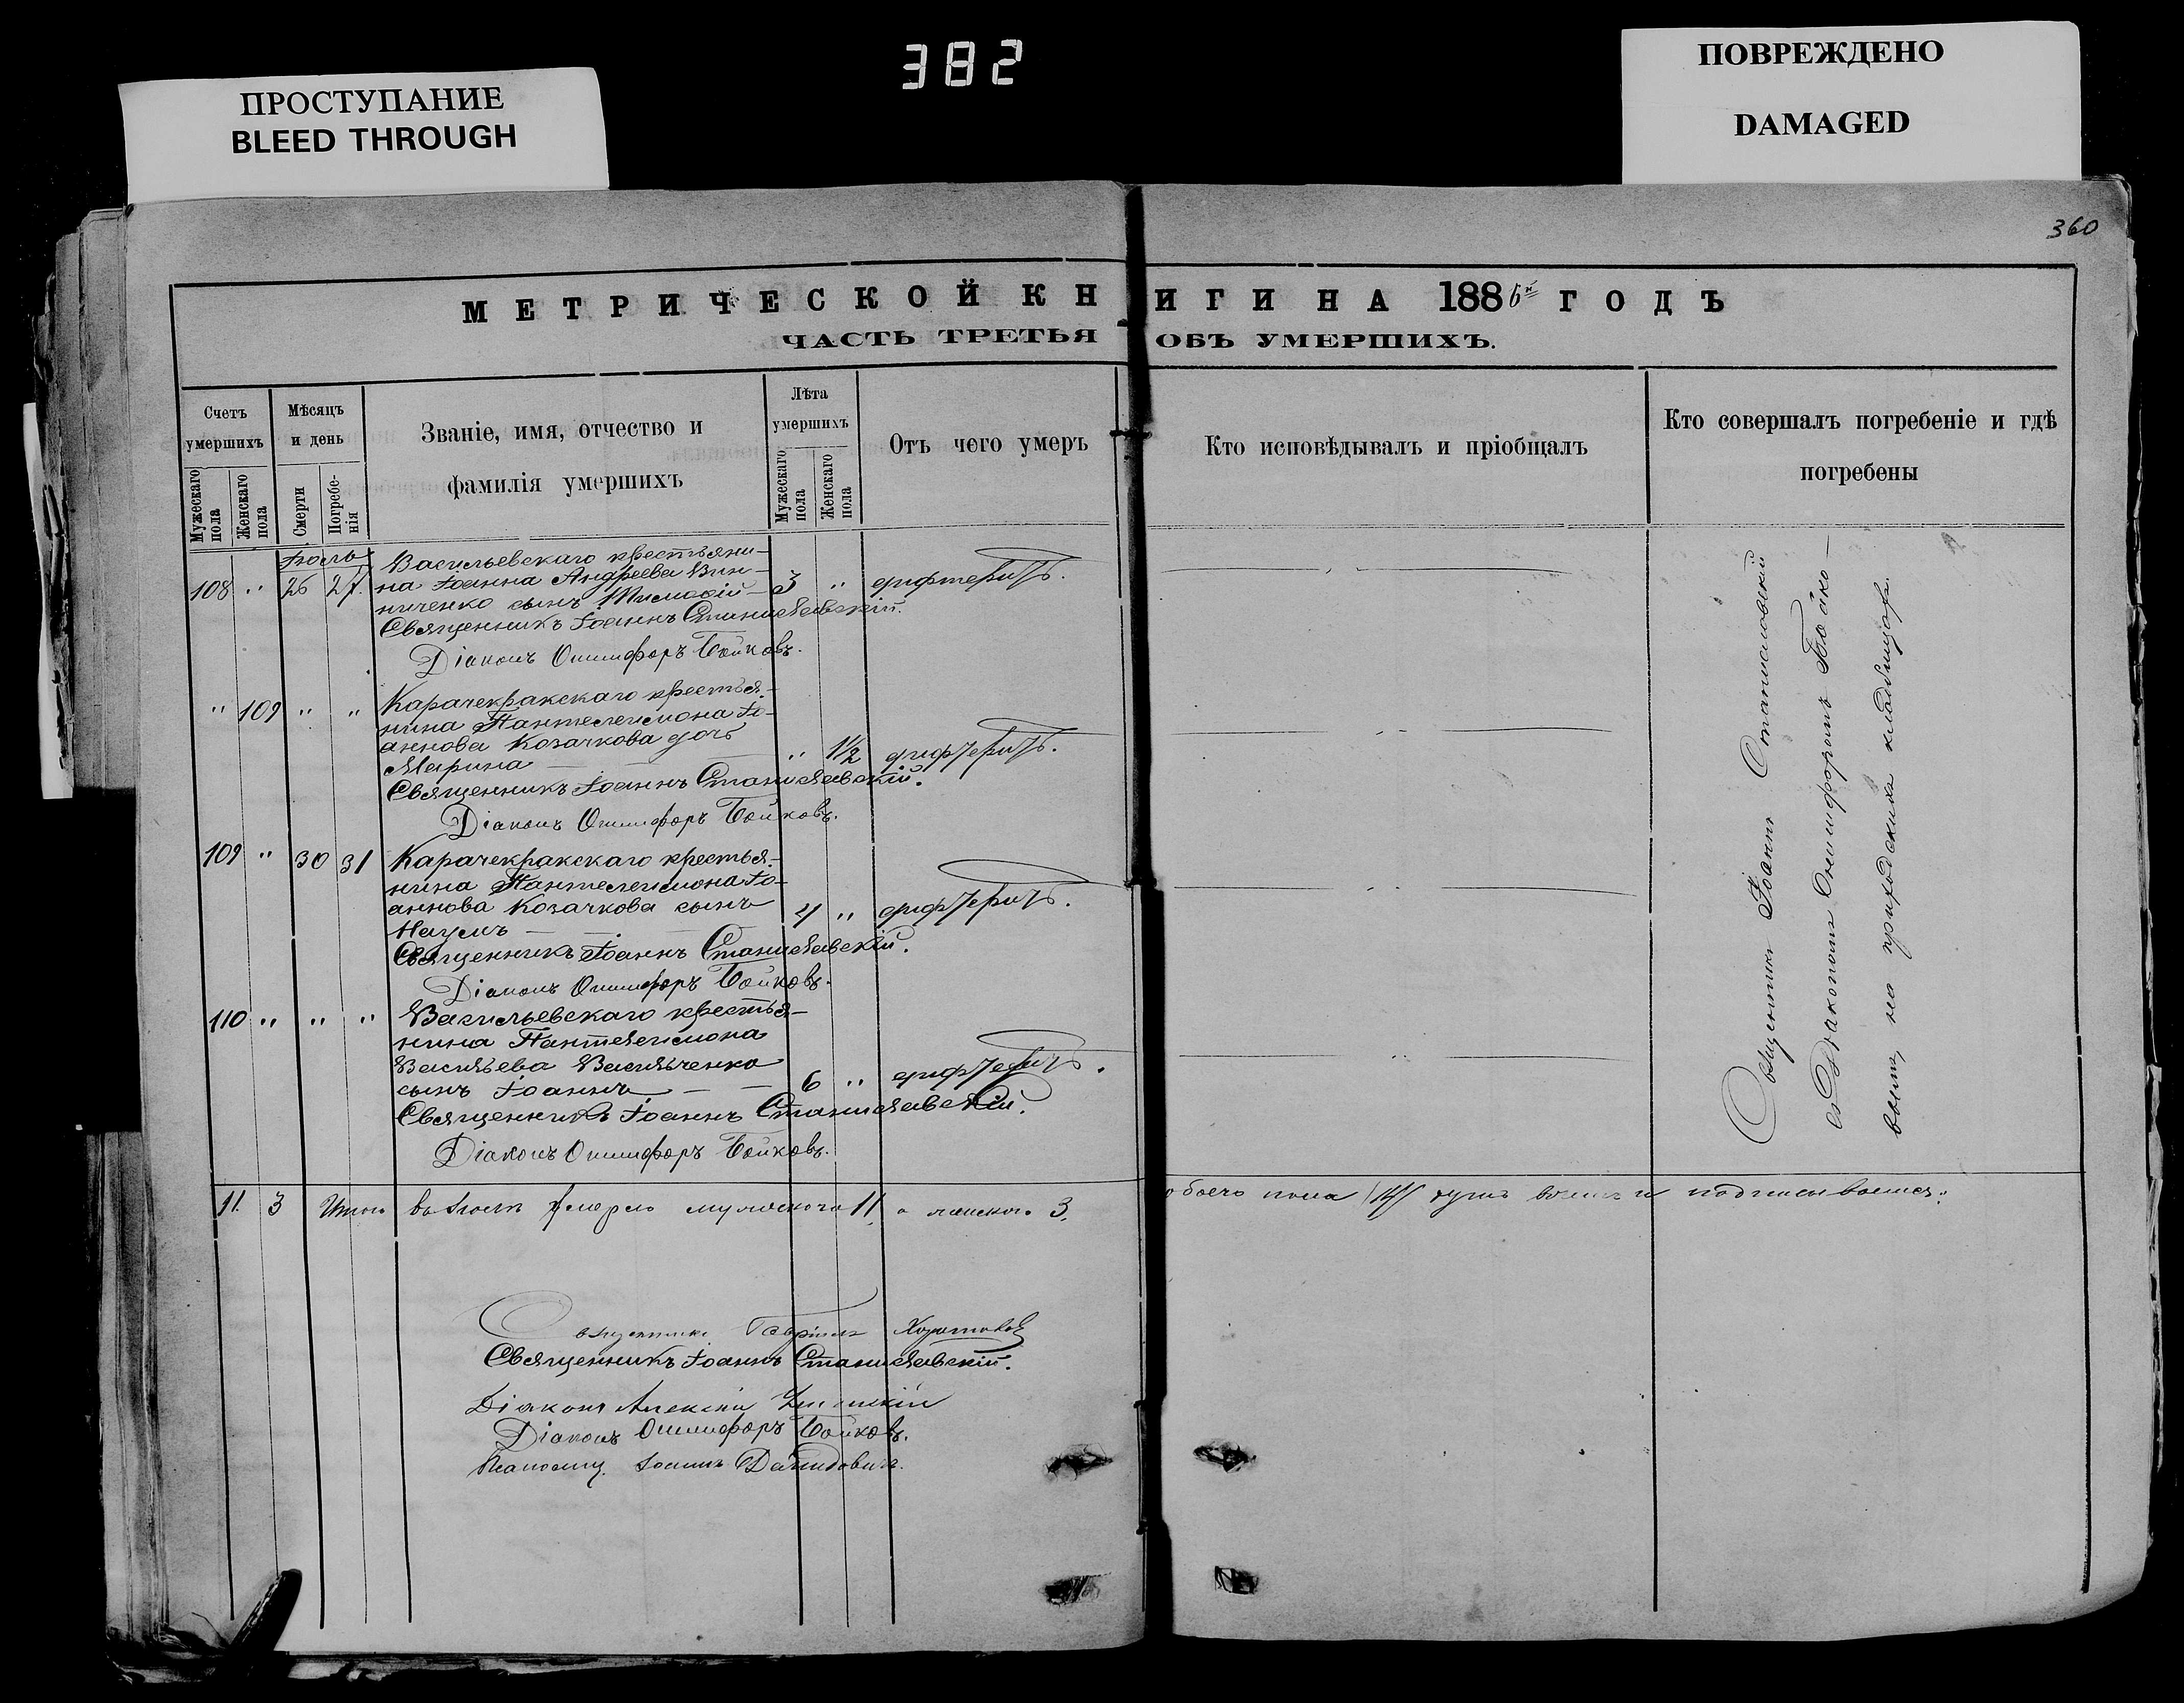 382
ПРОСТУПАНИЕ
BLEED THROUGH
ПОВРЕЖДЕНО
DAMAGED
360
МЕТРИЧЕСКОЙ КНИГИ НА 1886й ГОДЪ
ЧАСТЬ ТРЕТЬЯ ОБЪ УМЕРШИХЪ.
Счетъ умершихъ
Мужескаго пола
Женскаго пола
Мѣсяцъ и день
Смерти
Погребе-нія
Званіе, имя, отчество и
фамилія умершихъ
Лѣта умершихъ
Мужескаго пола
Женскаго пола
Отъ чего умеръ
Кто исповѣдывалъ и пріобщалъ
Кто совершалъ погребеніе и гдѣ
погребены
Іюль
Васильевскаго крестьяни-
108 " 26 27. на Іоанна Андреева Вин-
ниченко сынъ Тимофій 3 " дифтеритъ.
Священникъ Іоаннъ Станиславскій.
Діаконъ Онисифоръ Бойковъ.
" 109 " " Карачекракскаго крестья-
нина Пантелеимона Іо-
аннова Козачкова дочь
Марина " 1½ дифтеритъ.
Священникъ Іоаннъ Станиславскій.
Діаконъ Онисифоръ Бойковъ.
109 " 30 31 Карачекракскаго крестья-
нина Пантелеимона Іо-
аннова Козачкова сынъ
Наумъ 4 " дифтеритъ.
Священникъ Іоаннъ Станиславскій.
Діаконъ Онисифоръ Бойковъ.
110 " " " Васильевскаго крестья-
нина Пантелеимона
Васильева Васильченко
сынъ Іоаннъ 6 " дифтеритъ.
Священникъ Іоаннъ Станиславскій.
Діаконъ Онисифоръ Бойковъ.
Священникъ Іоаннъ Станиславскій
съ Діакономъ Онисифоромъ Бойко-
вымъ, на приходскихъ кладбищахъ.
11. 3 Итого въ Іюлѣ умерло мужескаго 11, а женскаго 3, обоего пола /14/ душъ подписываемся:
Священникъ Гавріилъ
Священникъ Іоаннъ Станиславскій.
Діаконъ Алексій
Діаконъ Онисифоръ Бойковъ.
Псаломщ. Іоаннъ Давидовичъ.